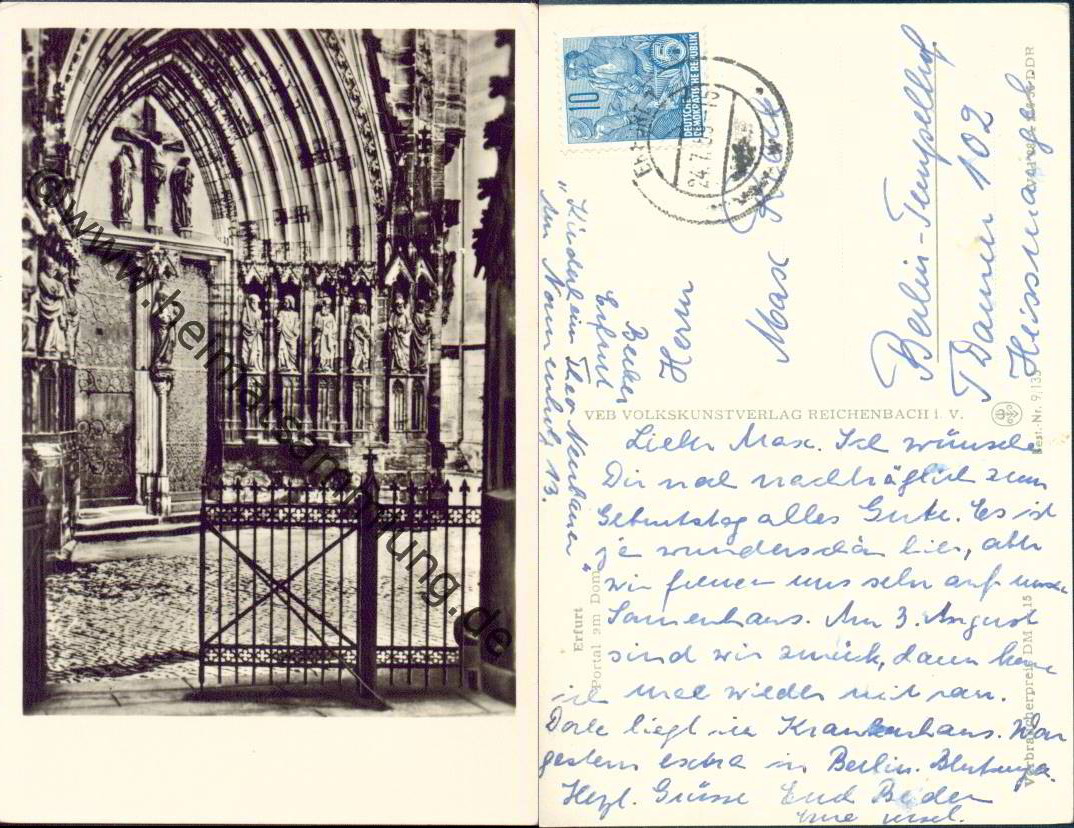 ©www.heimatsammlung.de
10
5
DEUTSCHE
DEMOKRATISCHE REPUBLIK
24.7.
Max
Berlin-Tempelhof
102
Horn
Becker
Erfurt
„Kinderheim Theo Neubauer“
Am 13.
VEB VOLKSKUNSTVERLAG REICHENBACH i. V.
Best.-Nr. 9/135
Verbraucherpreis DM 0,15
DDR
Erfurt
Portal am Dom
Lieber Max. Ich wünsche
Dir noch nachträglich zum
Geburtstag alles Gute. Es ist
ja wunderschön hier, aber
wir freuen uns sehr auf unser
. Am 3. August
sind wir zurück, dann komme
ich mal wieder mit ran.
Dorle liegt im Krankenhaus. War
gestern extra in Berlin. Blutung.
Herzl. Grüsse Eure Beiden